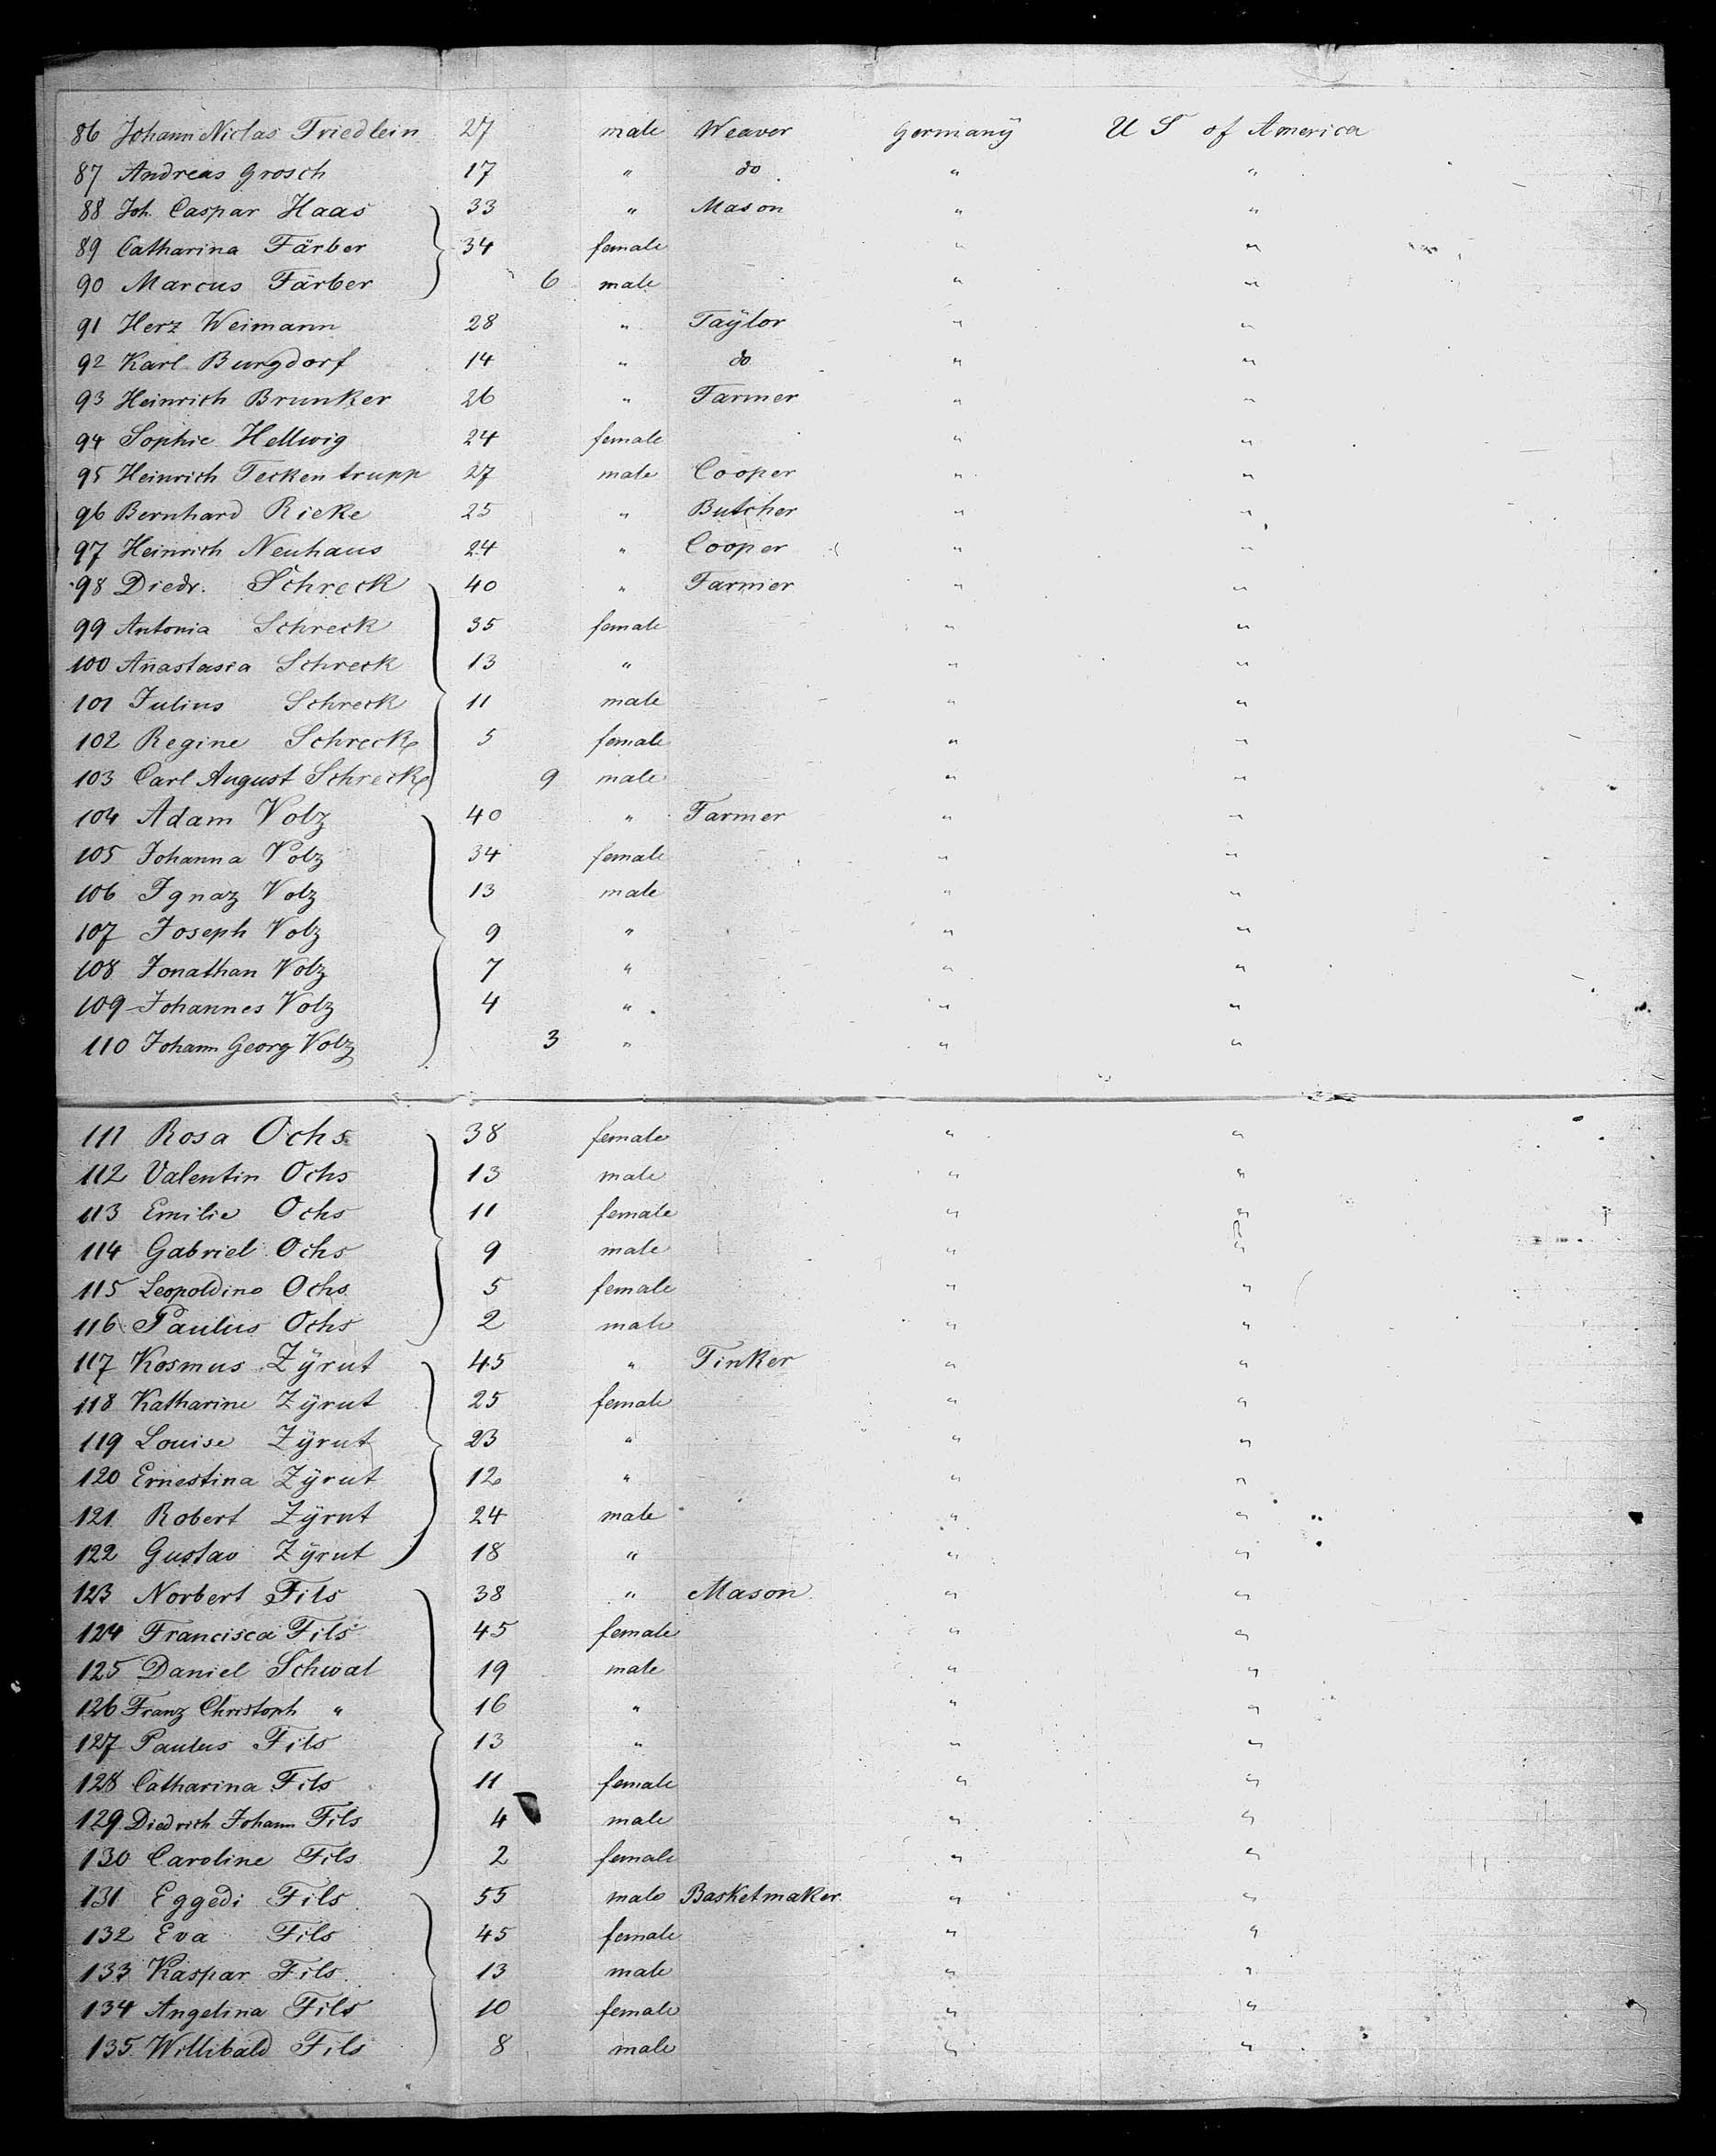 86 Johann Niclas Friedlein 27 male Weaver Germany U S of America
87 Andreas Grosch 17 " do " "
88 Joh. Caspar Haas 33 " Mason " "
89 Catharina Färber 34 female " "
90 Marcus Färber 6 male " "
91 Herz Weimann 28 " Taÿlor " "
92 Karl Burgdorf 14 " do " "
93 Heinrich Brunker 26 " Farmer " "
94 Sophie Hellwig 24 female " "
95 Heinrich Teckentrupp 27 male Cooper " "
96 Bernhard Rieke 25 " Butcher " "
97 Heinrich Neuhaus 24 " Cooper " "
98 Diedr. Schreck 40 " Farmer " "
99 Antonia Schreck 35 female " "
100 Anastasia Schreck 13 " " "
101 Julius Schreck 11 male " "
102 Regine Schreck 5 female " "
103 Carl August Schreck 9 male " "
104 Adam Volz 40 " Farmer " "
105 Johanna Volz 34 female " "
106 Ignaz Volz 13 male " "
107 Joseph Volz 9 " " "
108 Jonathan Volz 7 " " "
109 Johannes Volz 4 " " "
110 Johann Georg Volz 3 " " "
111 Rosa Ochs 38 female " "
112 Valentin Ochs 13 male " "
113 Emilie Ochs 11 female " "
114 Gabriel Ochs 9 male " "
115 Leopoldine Ochs 5 female " "
116 Paulus Ochs 2 male " "
117 Kosmus Zÿrut 45 " Tinker " "
118 Katharine Zÿrut 25 female " "
119 Louise Zÿrut 23 " " "
120 Ernestina Zÿrut 12 " " "
121 Robert Zÿrut 24 male " "
122 Gustav Zÿrut 18 " " "
123 Norbert Fils 38 " Mason " "
124 Francisca Fils 45 female " "
125 Daniel Schwal 19 male " "
126 Franz Christoph " 16 " " "
127 Paulus Fils 13 " " "
128 Catharina Fils 11 female " "
129 Diedrich Johann Fils 4 male " "
130 Caroline Fils 2 female " "
131 Eggedi Fils 55 male Basketmaker " "
132 Eva Fils 45 female " "
133 Kaspar Fils 13 male " "
134 Angelina Fils 10 female " "
135 Willibald Fils 8 male " "